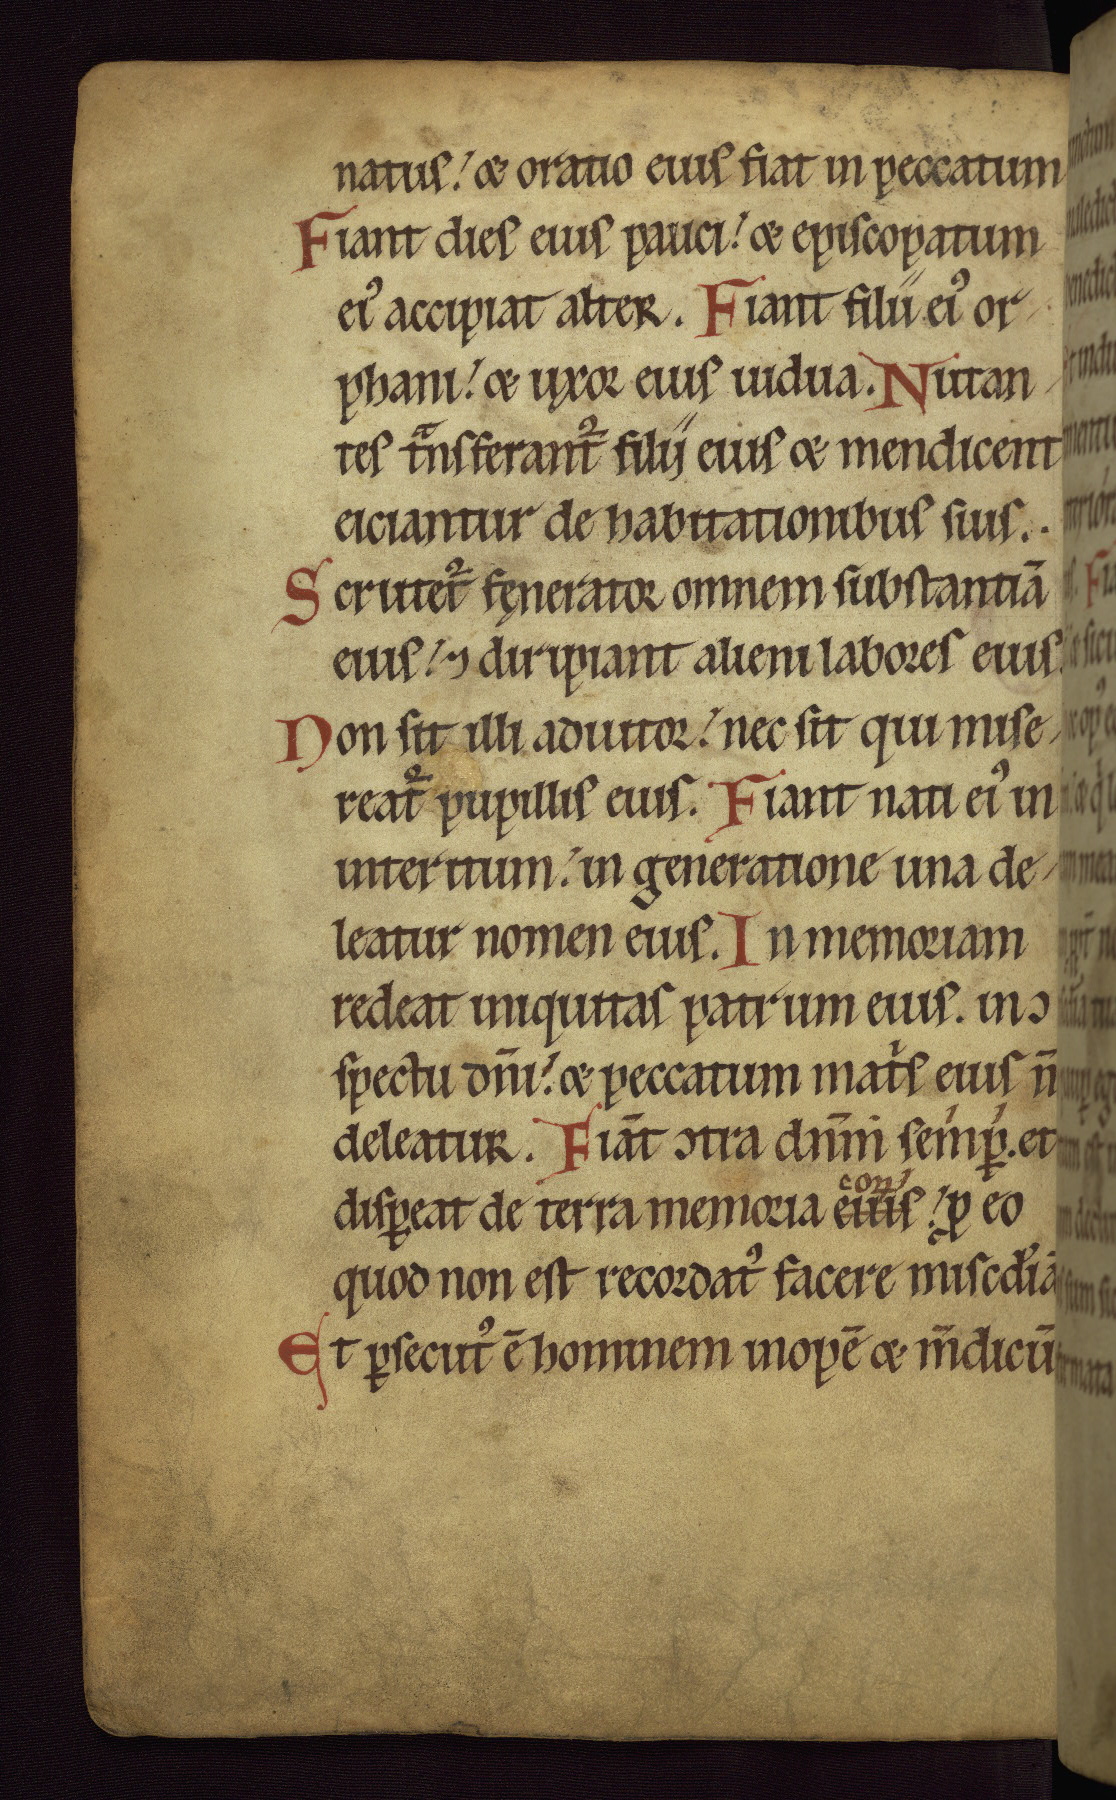 natus! & oratio eius fiat in peccatum
Fiant dies eius pauci! & episcopatum
ei᾽ accipiat alter. Fiant filii ei᾽ or-
phani! & uxor eius uidua. Nutan-
tes tͣnsferant᷑ filii eius & mendicent
eiciantur de habitationibus suis.
Scrutet᷑ fęnerator omnem substantiā
eius! ⁊ diripiant alieni labores eius.
Non sit illi adiutor! nec sit qui mise-
reat᷑ pupillis eius. Fiant nati ei᾽ in
interitum! in generatione una de-
leatur nomen eius. In memoriam
redeat iniquitas patrum eius. in ↄ
spectu dn̄i! & peccatum matͥs eius n̄
deleatur. Fiāt ↄtra dn̄m semꝑ. et
disꝑeat de terra memoria eius con! ꝓ eo
quod non est recordat᾽ facere miscd᾽iā
Et ꝑsecut᾽ ē hominem inopē & m̄dicū